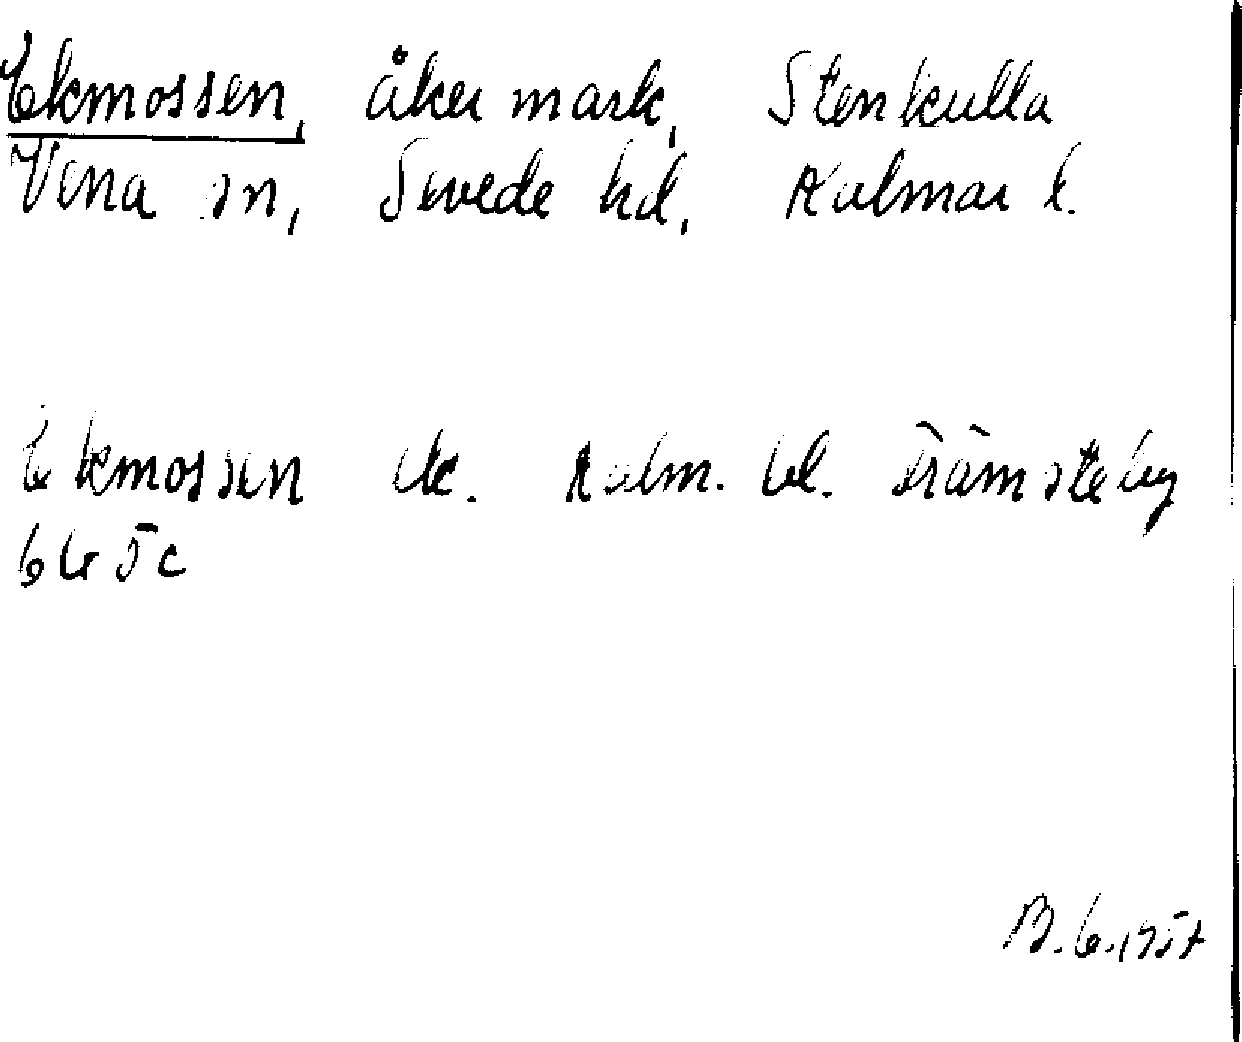 Ekmossen, åkermark, Stenkulla
Vena sn, Sevede hd, Kalmar l.
Ekmossen ek. Kalm. bl.
6G 5c
B.G. 1957